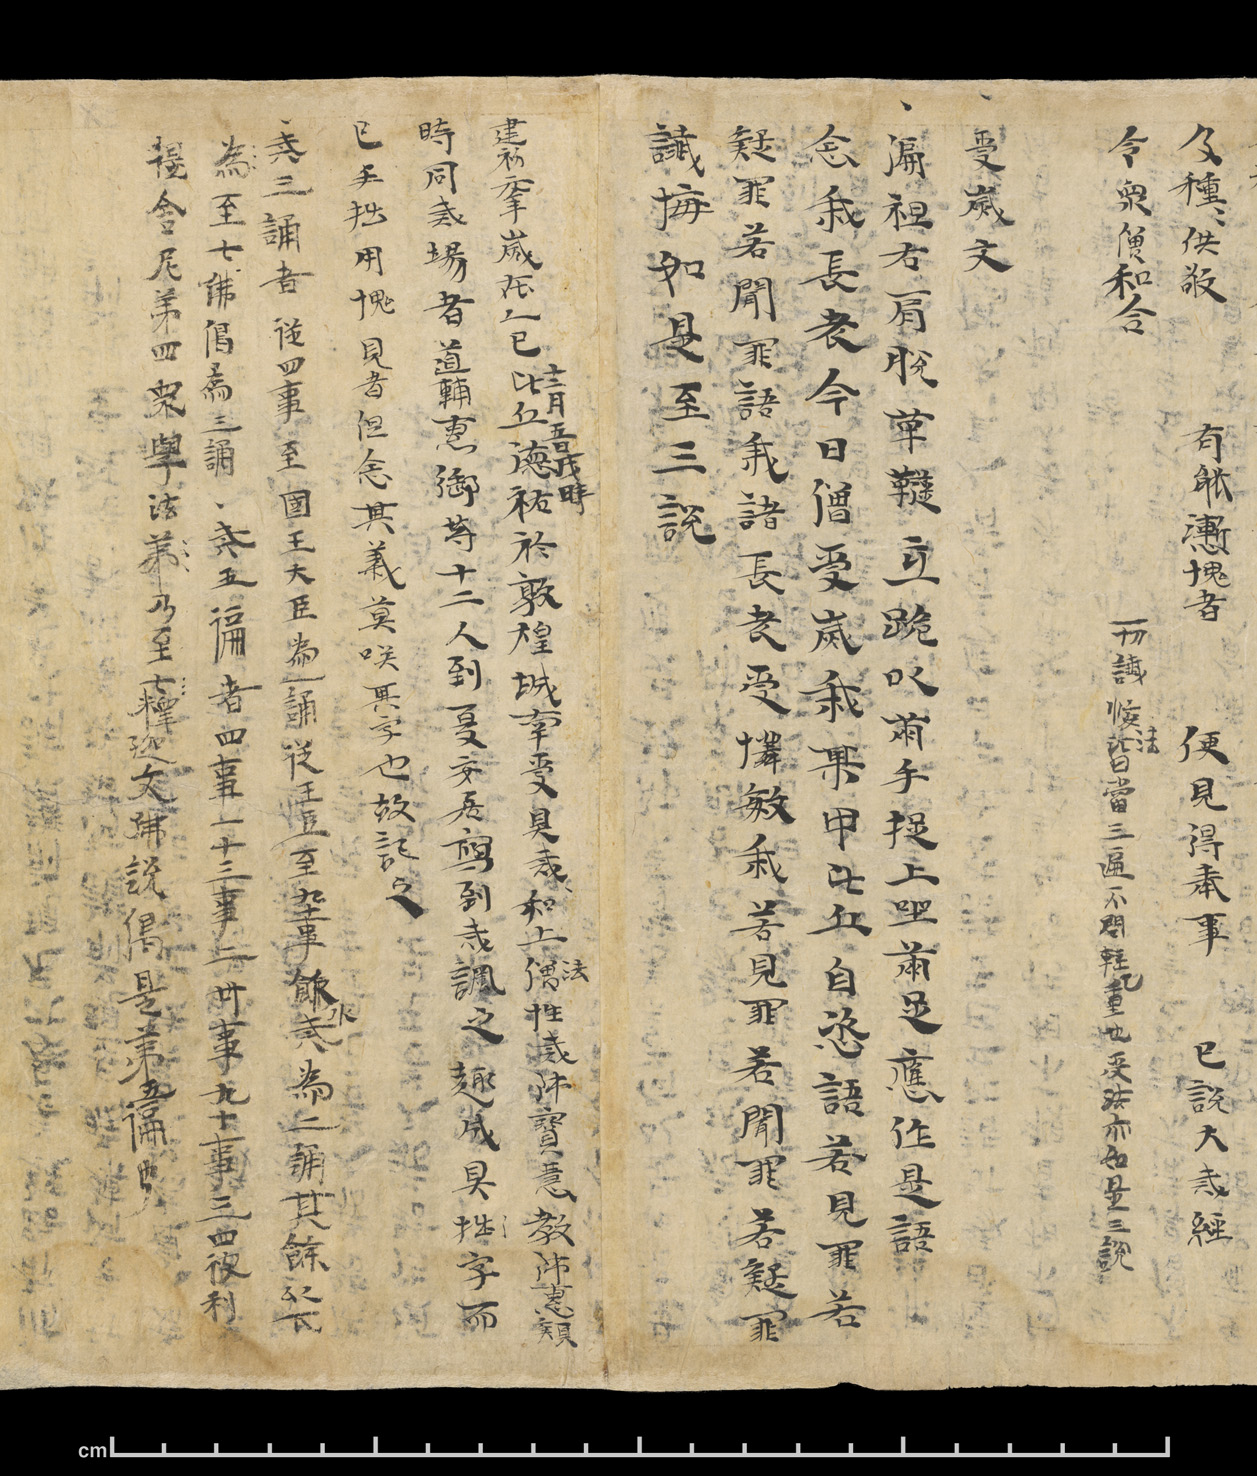 及種〻供敬 有能慚愧者 便見得奉事 已說大戒經
令眾僧和合 一切誦
法皆當三遍不問輕重也受法亦如是三說
受歲文
偏袒右肩脫革鞾立跪以兩手捉上坐兩足應作是語
念我長老今日僧受歲我某甲比丘自恣語若見罪若
疑罪若聞罪語我諸長老受憐愍我若見罪若聞罪若疑罪
懺悔如是至三說
建初元年歲在乙巳十二月五日戌時比丘德祐於敦煌城南受具戒和上僧法性戒師寶意教師惠穎
時同戒場者道輔惠御等十二人到夏安居寫到戒諷之趣成具拙字而
已手拙用愧見者但念其義莫咲其字也故記之
戒三誦者從四事至國王大臣為一誦從王臣至九十事飲水戒為二誦其餘
為至七佛偈為三誦戒五篇者四事一十三事二卅事九十事三四彼利
提舍尼第四眾學法第乃至七釋迦文佛說偈是第五篇